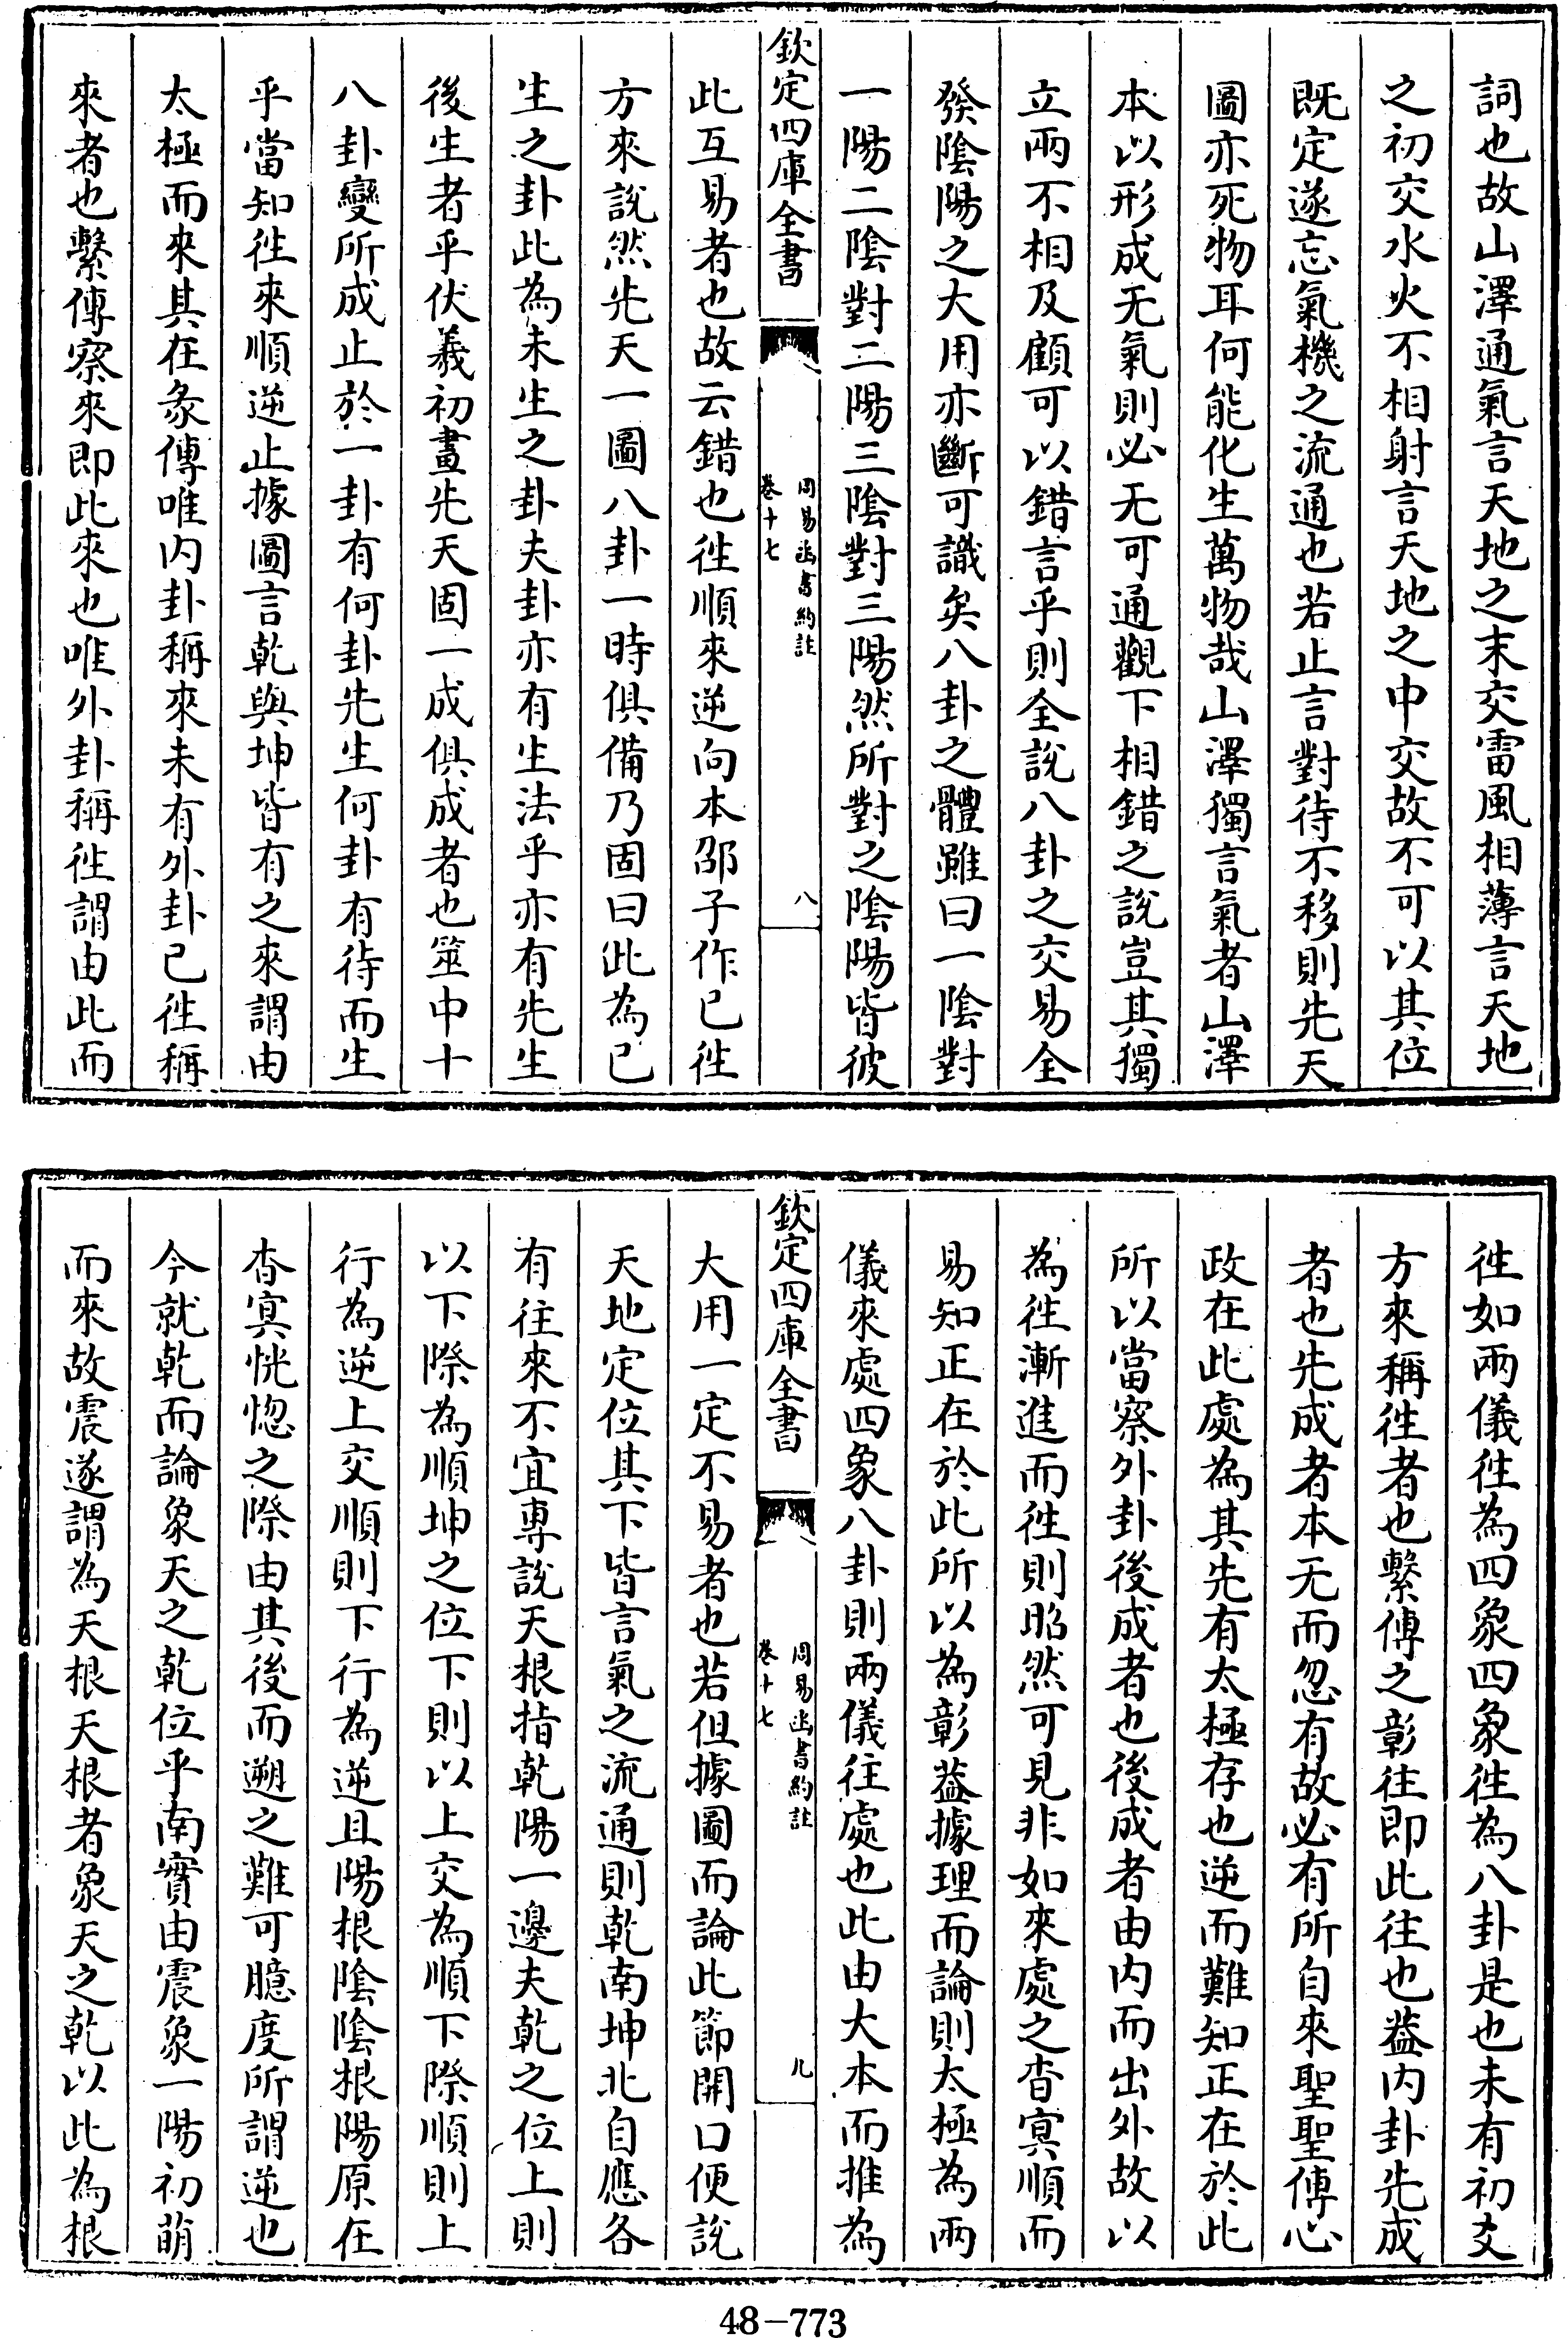 詞也故山澤通氣言天地之末交雷風相薄言天地
之初交水火不相射言天地之中交故不可以其位
既定遂忘氣機之流通也若止言對待不移則先天
圖亦死物耳何能化生萬物哉山澤獨言氣者山澤
本以形成无氣則必无可通觀下相錯之說豈其獨
立兩不相及顧可以錯言乎則全說八卦之交易全
發陰陽之大用亦斷可識矣八卦之體雖曰一陰對
一陽二陰對二陽三陰對三陽然所對之陰陽皆彼
欽定四庫全書
周易函書約註
卷十七
八
此互易者也故云錯也徃順來逆向本邵子作已徃
方來說然先天一圖八卦一時俱備乃固曰此為已
生之卦此為未生之卦夫卦亦有生法乎亦有先生
後生者乎伏羲初畫先天固一成俱成者也筮中十
八卦變所成止於一卦有何卦先生何卦有待而生
乎當知徃來順逆止據圖言乾與坤皆有之來謂由
太極而來其在彖傳唯内卦稱來未有外卦已徃稱
來者也繫傳察來即此來也唯外卦稱徃謂由此而
徃如兩儀徃為四象四象徃為八卦是也未有初爻
方來稱徃者也繫傳之彰往即此往也葢内卦先成
者也先成者本无而忽有故必有所自來聖聖傳心
政在此處為其先有太極存也逆而難知正在於此
所以當察外卦後成者也後成者由内而出外故以
為徃漸進而徃則昭然可見非如來處之杳冥順而
易知正在於此所以為彰葢據理而論則太極為兩
儀來處四象八卦則兩儀往處也此由大本而推為
欽定四庫全書
周易函書約註
卷十七
九
大用一定不易者也若但據圖而論此節開口便說
天地定位其下皆言氣之流通則乾南坤北自應各
有往來不宜專說天根指乾陽一邊夫乾之位上則
以下際為順坤之位下則以上交為順下際順則上
行為逆上交順則下行為逆且陽根陰陰根陽原在
杳冥恍惚之際由其後而遡之難可臆度所謂逆也
今就乾而論象天之乾位乎南實由震象一陽初萌
而來故震遂謂為天根天根者象天之乾以此為根
48-773